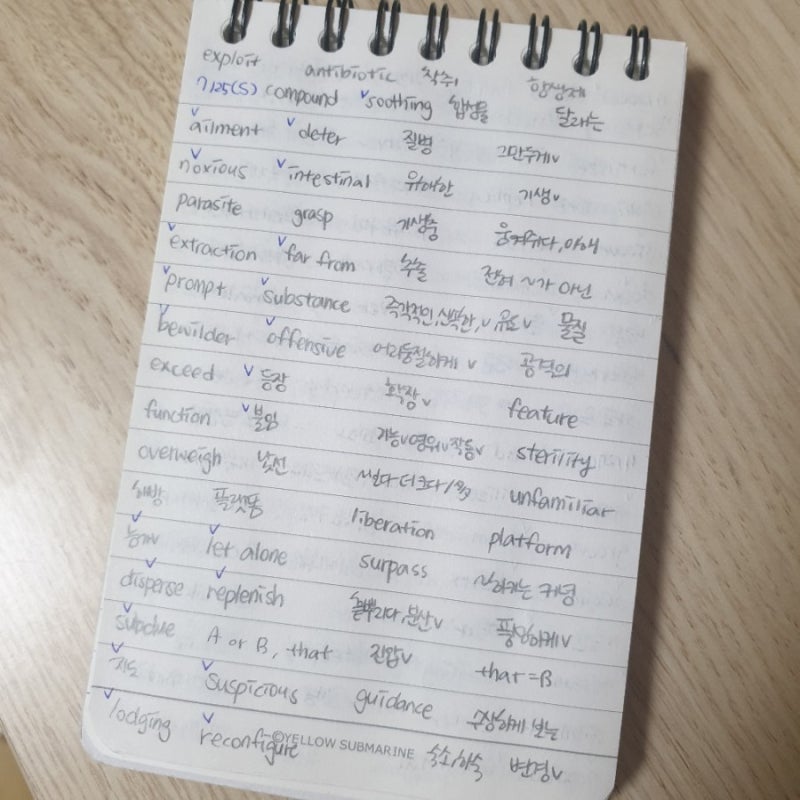 exploit antibiotic 착취 항생제
7/25(S) compound ✓soothing 합성물 달래는
✓ailment ✓deter 질병 그만두게✓
✓noxious ✓intestinal 유해한 기생✓
parasite grasp 기생충 움켜쥐다, 이해
✓extraction ✓far from 추출 전혀 ~가 아닌
✓prompt ✓substance 즉각적인, 신속한,✓, 유도✓ 물질
✓bewilder ✓offensive 어리둥절하게✓ 공격의
exceed ✓등장 확장✓ feature
function ✓불임 기능✓ 영위✓ 작동✓ sterility
overweigh 낯선 unfamiliar
해방 플랫폼 liberation platform
✓능가✓ ✓let alone surpass ~하기는 커녕
✓disperse ✓replenish 분산✓ 풍잉하게✓
✓subdue A or B, that 진압✓ that=B
✓지도 ✓suspicious guidance 수상하게 보는
✓lodging ✓reconfigure 숙소,하숙 변경✓
©YELLOW SUBMARINE